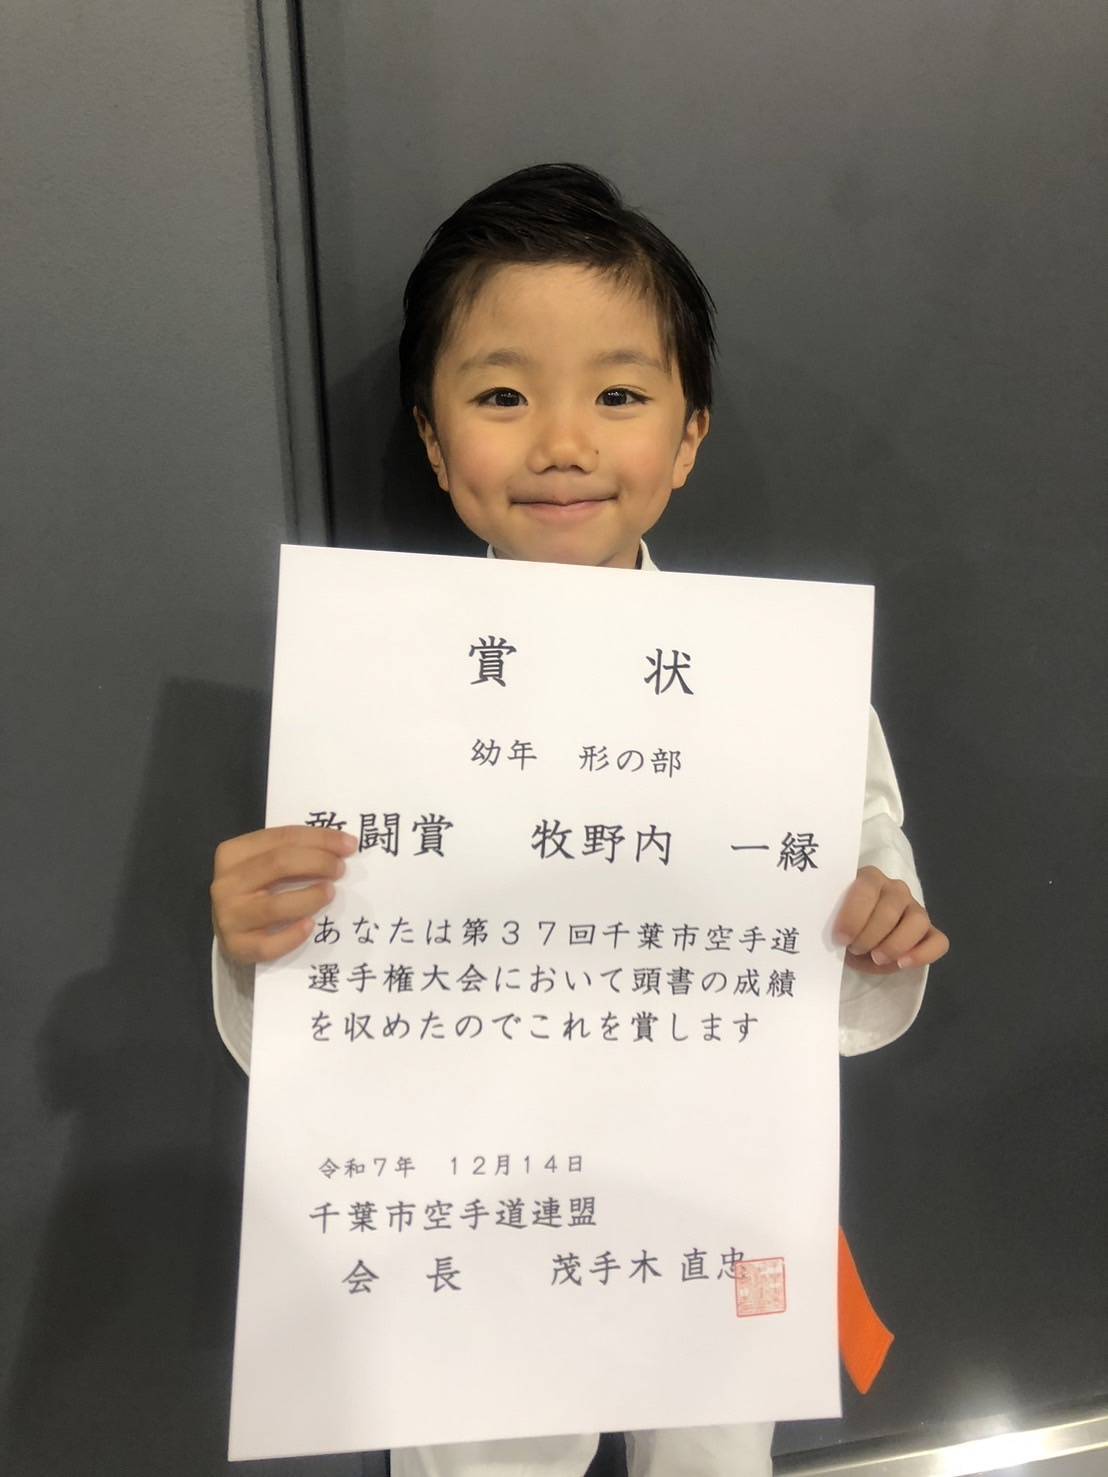 賞　状
幼年　形の部
敢闘賞　牧野内　一縁
あなたは第３７回千葉市空手道
選手権大会において頭書の成績
を収めたのでこれを賞します
令和７年　１２月１４日
千葉市空手道連盟
会　長　茂手木 直忠